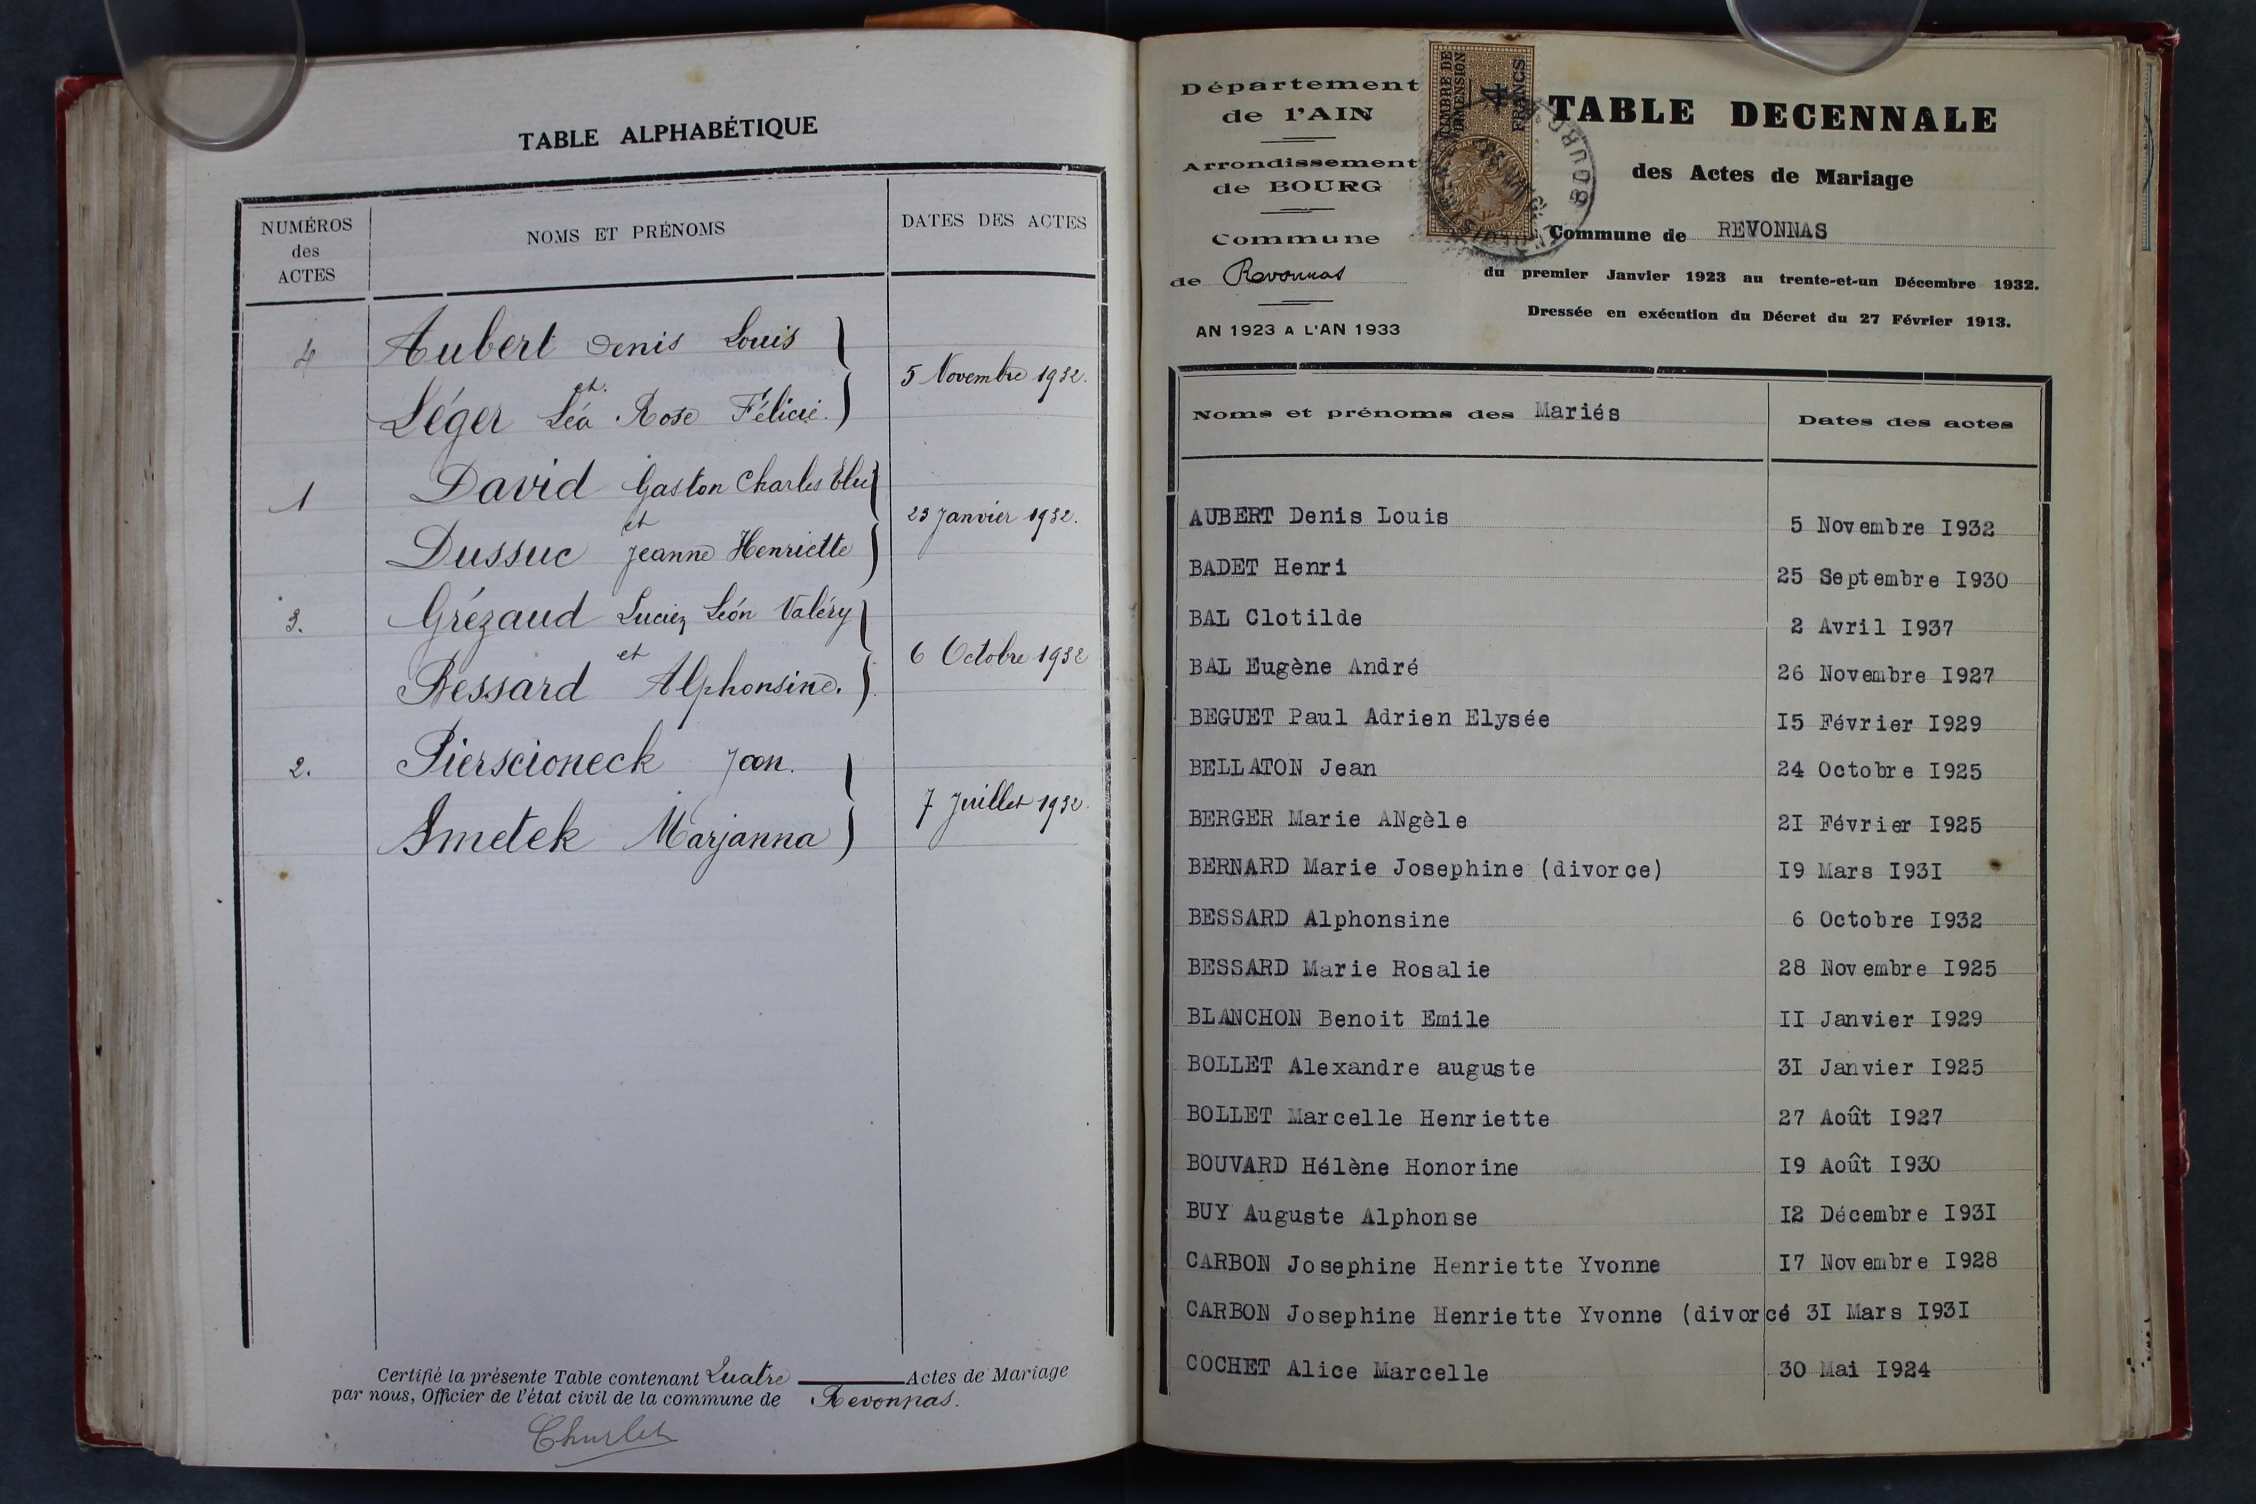 TABLE ALPHABÉTIQUE
NUMÉROS
des
ACTES
NOMS ET PRÉNOMS
DATES DES ACTES
4 Aubert Denis Louis
et
5 Novembre 1932.
Léger Léa Rose Félicie.
1 David Gaston Charles
et
23 Janvier 1932.
Dussuc Jeanne Henriette
3. Grézaud Lucien Léon Valéry
et
6 Octobre 1932
Bessard Alphonsine.
2. Pierscioneck Jean.
7 Juillet 1932.
Smetek Marjanna
Certifié la présente Table contenant Quatre Actes de Mariage
par nous, Officier de l'état civil de la commune de Revonnas.
Département
de l'AIN
Arrondissement
de BOURG
Commune
de Revonnas
AN 1923 A L'AN 1933
TIMBRE DE
DIMENSION
4
FRANCS
BOURG
TABLE DECENNALE
des Actes de Mariage
Commune de REVONNAS
du premier Janvier 1923 au trente-et-un Décembre 1932.
Dressée en exécution du Décret du 27 Février 1913.
Noms et prénoms des Mariés
Dates des actes
AUBERT Denis Louis 5 Novembre I932
BADET Henri 25 Septembre I930
BAL Clotilde 2 Avril I937
BAL Eugène André 26 Novembre I927
BEGUET Paul Adrien Elysée I5 Février I929
BELLATON Jean 24 Octobre I925
BERGER Marie ANgèle 2I Février I925
BERNARD Marie Josephine (divorce) I9 Mars I93I
BESSARD Alphonsine 6 Octobre I932
BESSARD Marie Rosalie 28 Novembre I925
BLANCHON Benoit Emile II Janvier I929
BOLLET Alexandre auguste 3I Janvier I925
BOLLET Marcelle Henriette 27 Août I927
BOUVARD Hélène Honorine I9 Août I930
BUY Auguste Alphonse I2 Décembre I93I
CARBON Josephine Henriette Yvonne I7 Novembre I928
CARBON Josephine Henriette Yvonne (divorcé 3I Mars I93I
COCHET Alice Marcelle 30 Mai I924